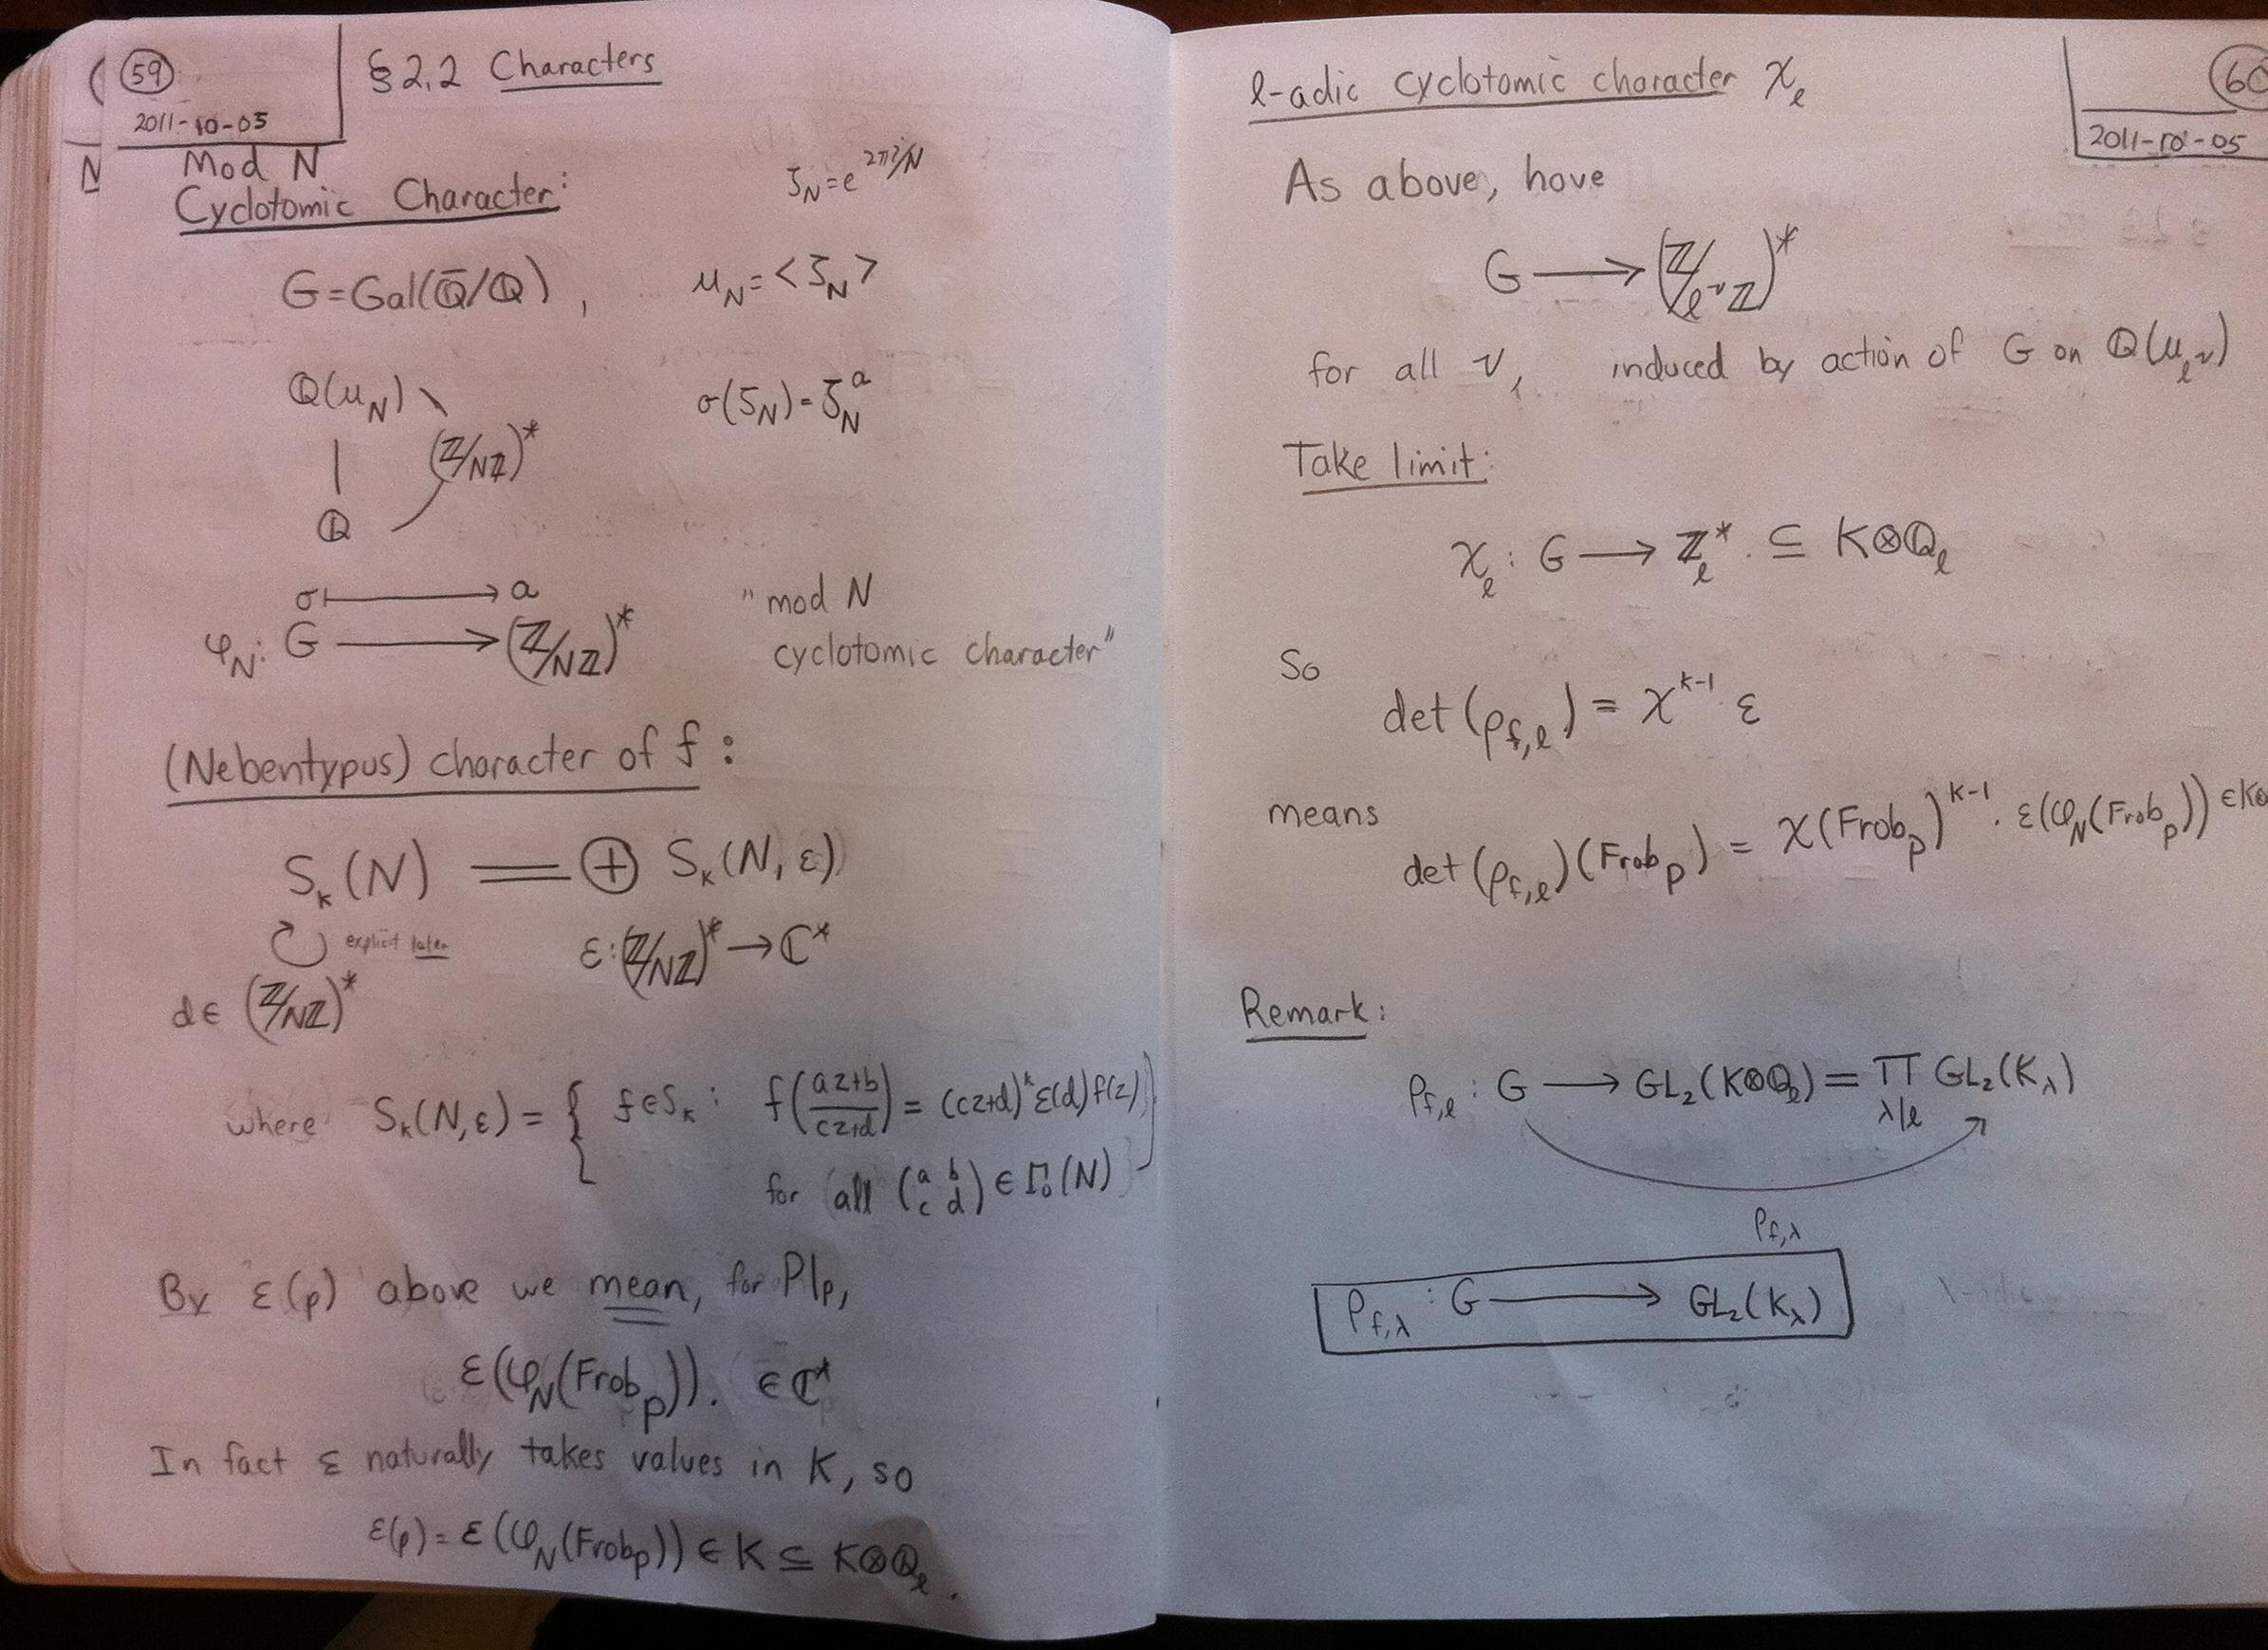 59
2011-10-05
§2.2 Characters
N
Mod N
Cyclotomic Character:
ζ_N = e^{2πi/N}
G = Gal(Q̄/ℚ),
μ_N = <ζ_N>
ℚ(μ_N)
(ℤ/Nℤ)*
ℚ
σ(ζ_N) = ζ_N^a
σ ↦ a
φ_N: G → (ℤ/Nℤ)*
"mod N
cyclotomic character"
(Nebentypus) character of f:
S_k(N) = ⊕ S_k(N, ε)
explicit later
ε: (ℤ/Nℤ)* → ℂ*
d ∈ (ℤ/Nℤ)*
where S_k(N,ε) = { f ∈ S_k : f((az+b)/(cz+d)) = (cz+d)^k ε(d) f(z)
for all (a b c d) ∈ Γ_0(N) }
By ε(p) above we mean, for P|p,
ε(φ_N(Frob_p)). ∈ ℂ*
In fact ε naturally takes values in K, so
ε(p) = ε(φ_N(Frob_p)) ∈ K ⊆ K⊗ℚ_ℓ.
60
2011-10-05
ℓ-adic cyclotomic character χ_ℓ
As above, have
G → (ℤ/ℓ^ν ℤ)*
for all ν, induced by action of G on ℚ(μ_{ℓ^ν})
Take limit:
χ_ℓ: G → ℤ_ℓ* ⊆ K⊗ℚ_ℓ
So
det(ρ_{f,ℓ}) = χ^{k-1} ε
means
det(ρ_{f,ℓ})(Frob_p) = χ(Frob_p)^{k-1} · ε(φ_N(Frob_p)) ∈ K⊗
Remark:
ρ_{f,ℓ}: G → GL_2(K⊗ℚ_ℓ) = ∏_{λ|ℓ} GL_2(K_λ)
ρ_{f,λ}
ρ_{f,λ}: G → GL_2(K_λ)